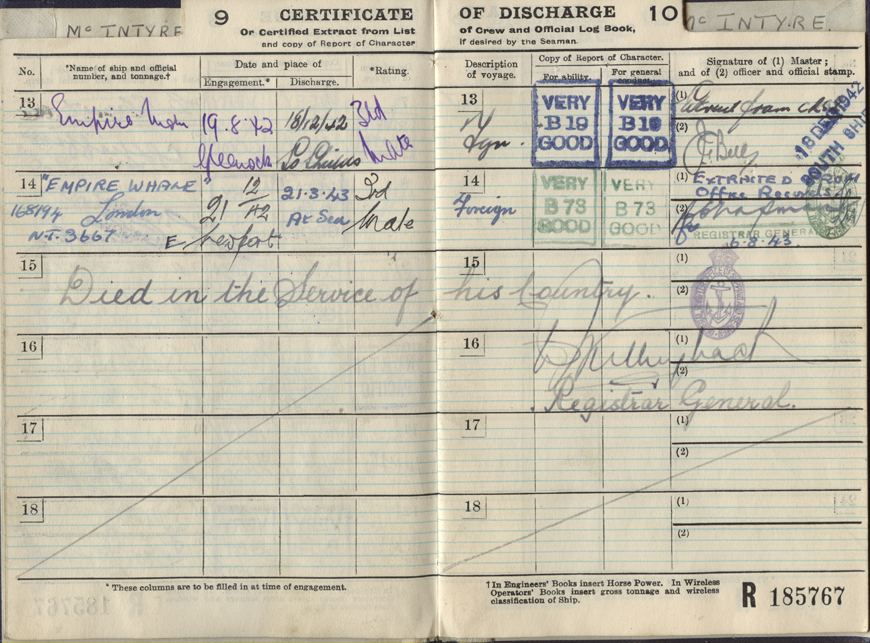 Mc INTYRE
Mc INTYRE.
9 CERTIFICATE OF DISCHARGE 10
Or Certified Extract from List of Crew and Official Log Book,
and copy of Report of Character if desired by the Seaman.
No.
*Name of ship and official number, and tonnage.†
Date and place of
Engagement.*
Discharge.
*Rating.
Description of voyage.
Copy of Report of Character.
For ability.
For general conduct.
Signature of (1) Master; and of (2) officer and official stamp.
13
Empire
19.8.42
18/12/42
3rd
Greenock
So Shields
Mate
13
Fgn.
VERY B 19 GOOD
VERY B 19 GOOD
(1)
(2)
18 DEC 1942
SOUTH SHIE
14
"EMPIRE WHALE"
168194 London
N.T. 3667
12
21 /42
E Newport.
21.3.43
At Sea
3rd
Mate
14
Foreign
VERY B 73 GOOD
VERY B 73 GOOD
(1) EXTRACTED from
Office Records
(2)
for REGISTRAR GENERAL
6.8.43
15
Died in the Service of his Country.
15
(1)
(2)
16
16
(1)
(2)
Registrar General.
17
17
(1)
(2)
18
18
(1)
(2)
* These columns are to be filled in at time of engagement.
† In Engineers' Books insert Horse Power. In Wireless
Operators' Books insert gross tonnage and wireless
classification of Ship.
R 185767